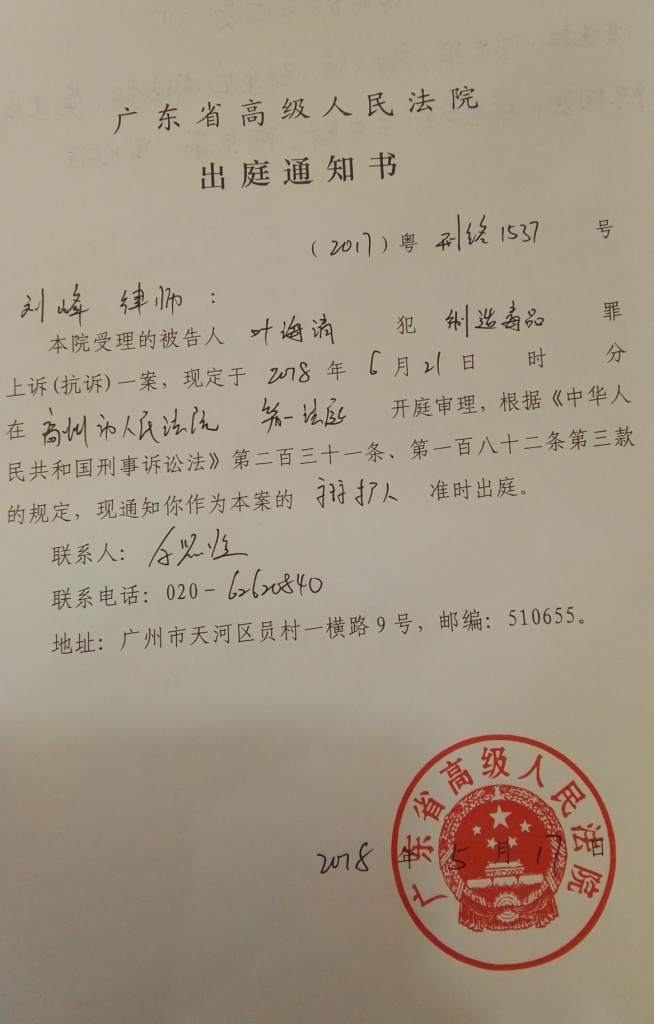 广东省高级人民法院
出庭通知书
（2017）粤 刑终1537 号
刘峰 律师：
本院受理的被告人 叶海清 犯 制造毒品 罪
上诉(抗诉)一案，现定于 2018 年 6 月 21 日 时 分
在 高州市人民法院 第一法庭 开庭审理，根据《中华人
民共和国刑事诉讼法》第二百三十一条、第一百八十二条第三款
的规定，现通知你作为本案的 辩护人 准时出庭。
联系人：
联系电话：020-62620840
地址：广州市天河区员村一横路9号，邮编：510655。
2018 年 5 月 17 日
广东省高级人民法院